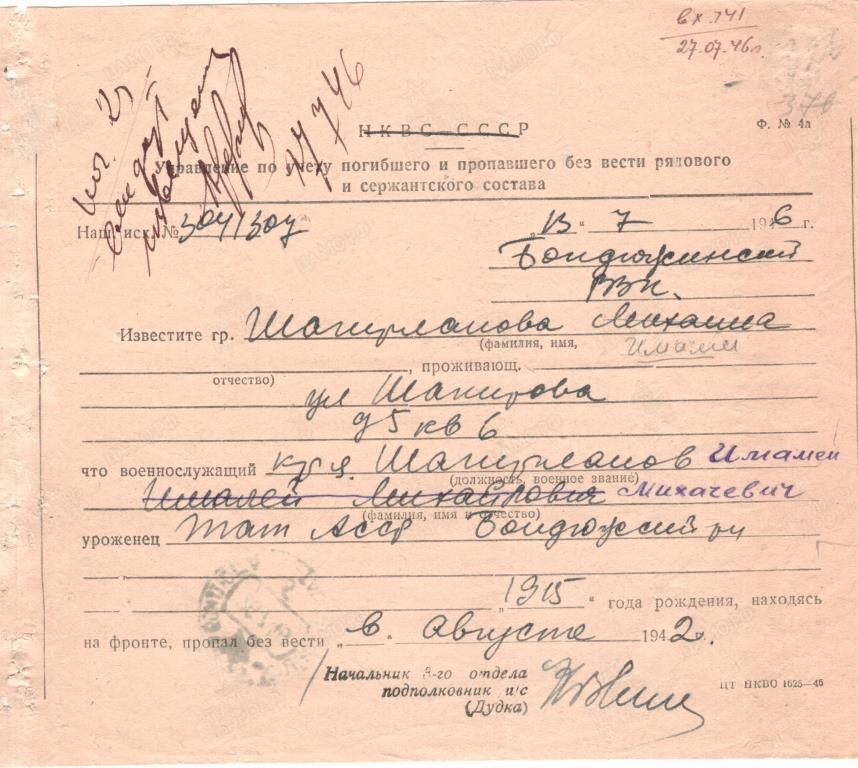 вх. 741
27.07.46г.
376
17 7 46
НКВС СССР
Ф. № 4а
Управление по учету погибшего и пропавшего без вести рядового
и сержантского состава
Наш исх. № 3041307 „13“ 7 1946 г.
Бондюжинский
РВК.
Известите гр. Шапурланова Михаила
(фамилия, имя,
Имами
отчество)
, проживающ.
ул Шакирова
д5 кв 6
что военнослужащий кр-ц. Шапурланов Имамей
(должность, военное звание)
Ималей Михайлович Михачевич
(фамилия, имя и отчество)
уроженец Тат АССР Бондюжский рн
„1915“ года рождения, находясь
на фронте, пропал без вести „в“ августе 1942г.
Начальник 8-го отдела
подполковник и/с
(Дудка)
ЦТ НКВО 1625—46